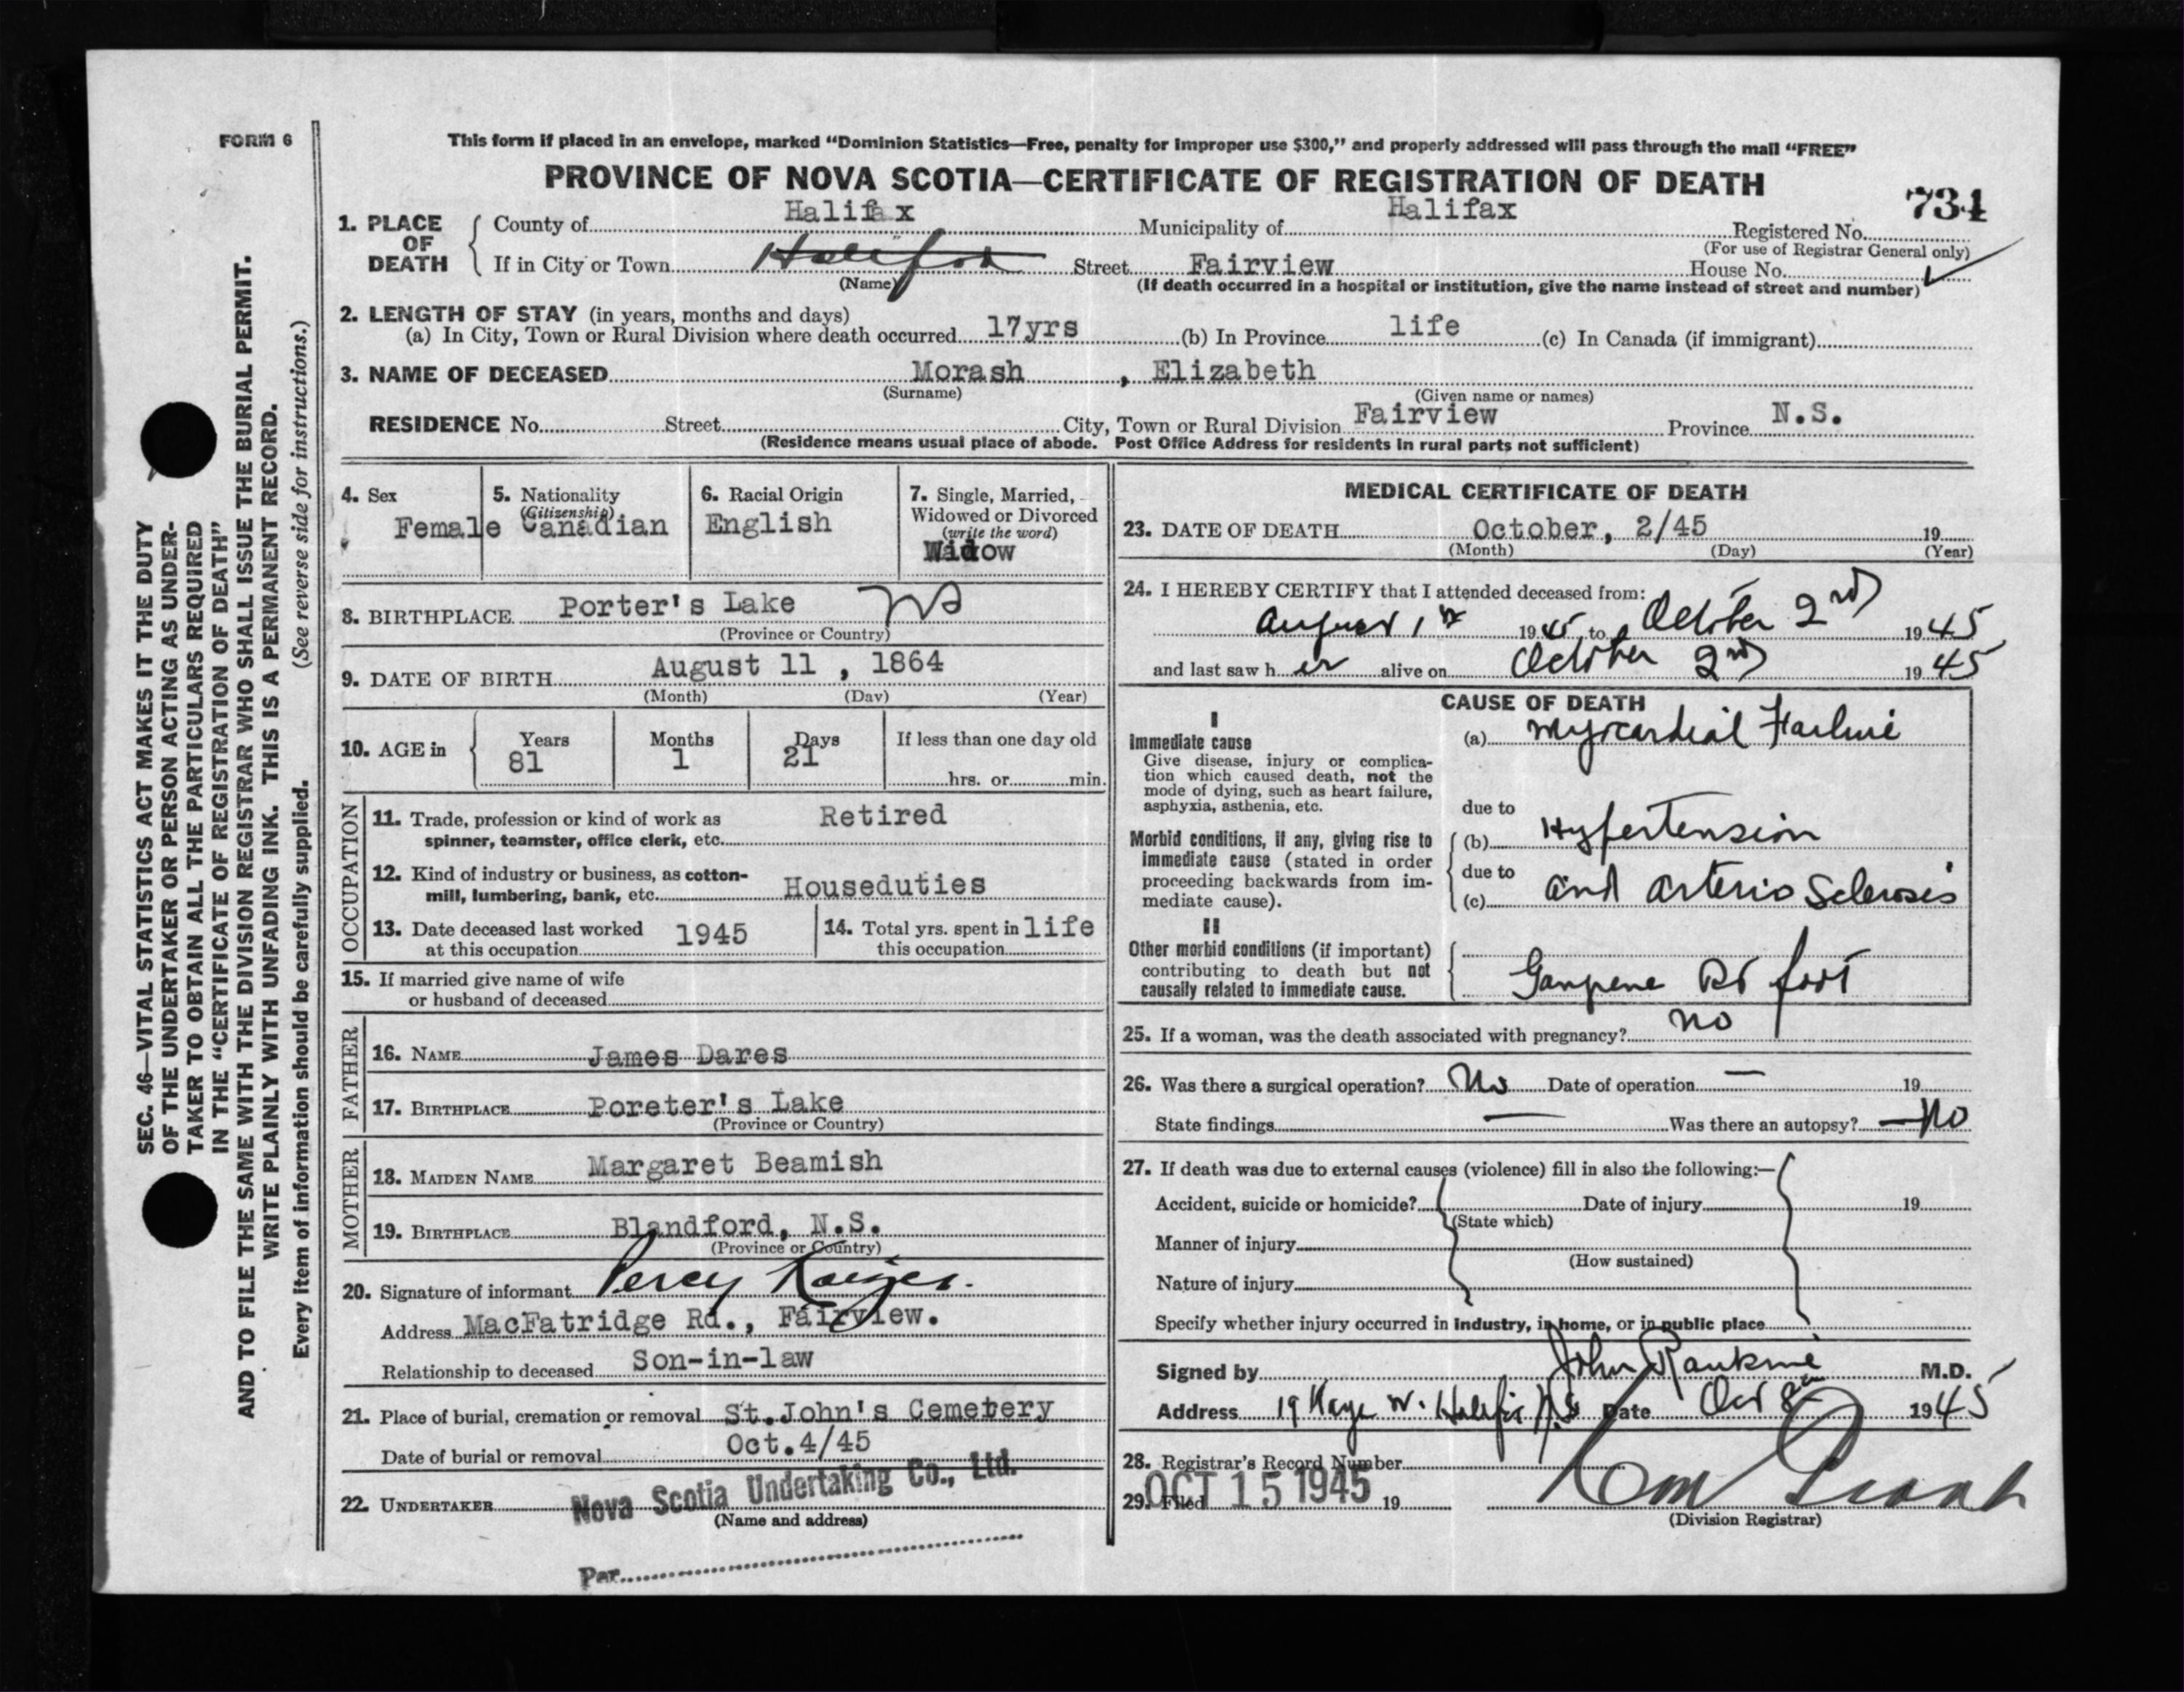 FORM 6
This form if placed in an envelope, marked “Dominion Statistics—Free, penalty for improper use $300,” and properly addressed will pass through the mail “FREE”
PROVINCE OF NOVA SCOTIA—CERTIFICATE OF REGISTRATION OF DEATH
734
1. PLACE OF DEATH
County of Halifax Municipality of Halifax Registered No.
(For use of Registrar General only)
If in City or Town Halifax Street Fairview House No.
(Name) (If death occurred in a hospital or institution, give the name instead of street and number)
2. LENGTH OF STAY (in years, months and days)
(a) In City, Town or Rural Division where death occurred 17yrs (b) In Province life (c) In Canada (if immigrant)
3. NAME OF DECEASED Morash , Elizabeth
(Surname) (Given name or names)
RESIDENCE No. Street City, Town or Rural Division Fairview Province N.S.
(Residence means usual place of abode. Post Office Address for residents in rural parts not sufficient)
4. Sex Female
5. Nationality (Citizenship) Canadian
6. Racial Origin English
7. Single, Married, Widowed or Divorced (write the word) Widow
8. BIRTHPLACE Porter's Lake NS
(Province or Country)
9. DATE OF BIRTH August 11 , 1864
(Month) (Day) (Year)
10. AGE in Years 81 Months 1 Days 21 If less than one day old
hrs. or min.
OCCUPATION
11. Trade, profession or kind of work as Retired
spinner, teamster, office clerk, etc.
12. Kind of industry or business, as cotton-
mill, lumbering, bank, etc. Houseduties
13. Date deceased last worked at this occupation 1945
14. Total yrs. spent in this occupation life
15. If married give name of wife
or husband of deceased
FATHER
16. NAME James Dares
17. BIRTHPLACE Poreter's Lake
(Province or Country)
MOTHER
18. MAIDEN NAME Margaret Beamish
19. BIRTHPLACE Blandford, N.S.
(Province or Country)
20. Signature of informant Percy
Address MacFatridge Rd., Fairview.
Relationship to deceased Son-in-law
21. Place of burial, cremation or removal St.John's Cemetery
Date of burial or removal Oct.4/45
22. UNDERTAKER Nova Scotia Undertaking Co., Ltd.
(Name and address)
Per
MEDICAL CERTIFICATE OF DEATH
23. DATE OF DEATH October, 2/45 19
(Month) (Day) (Year)
24. I HEREBY CERTIFY that I attended deceased from:
August 1st 1945, to October 2nd 1945
and last saw her alive on October 2nd 1945
CAUSE OF DEATH
I
Immediate cause
Give disease, injury or complica-
tion which caused death, not the
mode of dying, such as heart failure,
asphyxia, asthenia, etc.
(a) Myocardial Failure
due to
Morbid conditions, if any, giving rise to
immediate cause (stated in order
proceeding backwards from im-
mediate cause).
(b) Hypertension
due to
(c) and arterio Sclerosis
II
Other morbid conditions (if important)
contributing to death but not
causally related to immediate cause.
Gangrene Rt foot
25. If a woman, was the death associated with pregnancy? no
26. Was there a surgical operation? No Date of operation — 19
State findings — Was there an autopsy? —No
27. If death was due to external causes (violence) fill in also the following:—
Accident, suicide or homicide? Date of injury 19
(State which)
Manner of injury
(How sustained)
Nature of injury
Specify whether injury occurred in industry, in home, or in public place
Signed by John Rankine M.D.
Address 19 Kaye St. Halifax N.S Date Oct 8th 1945
28. Registrar's Record Number
29. Filed OCT 15 1945 19
(Division Registrar)
SEC. 46—VITAL STATISTICS ACT MAKES IT THE DUTY
OF THE UNDERTAKER OR PERSON ACTING AS UNDER-
TAKER TO OBTAIN ALL THE PARTICULARS REQUIRED
IN THE “CERTIFICATE OF REGISTRATION OF DEATH”
AND TO FILE THE SAME WITH THE DIVISION REGISTRAR WHO SHALL ISSUE THE BURIAL PERMIT.
WRITE PLAINLY WITH UNFADING INK. THIS IS A PERMANENT RECORD.
Every item of information should be carefully supplied. (See reverse side for instructions.)